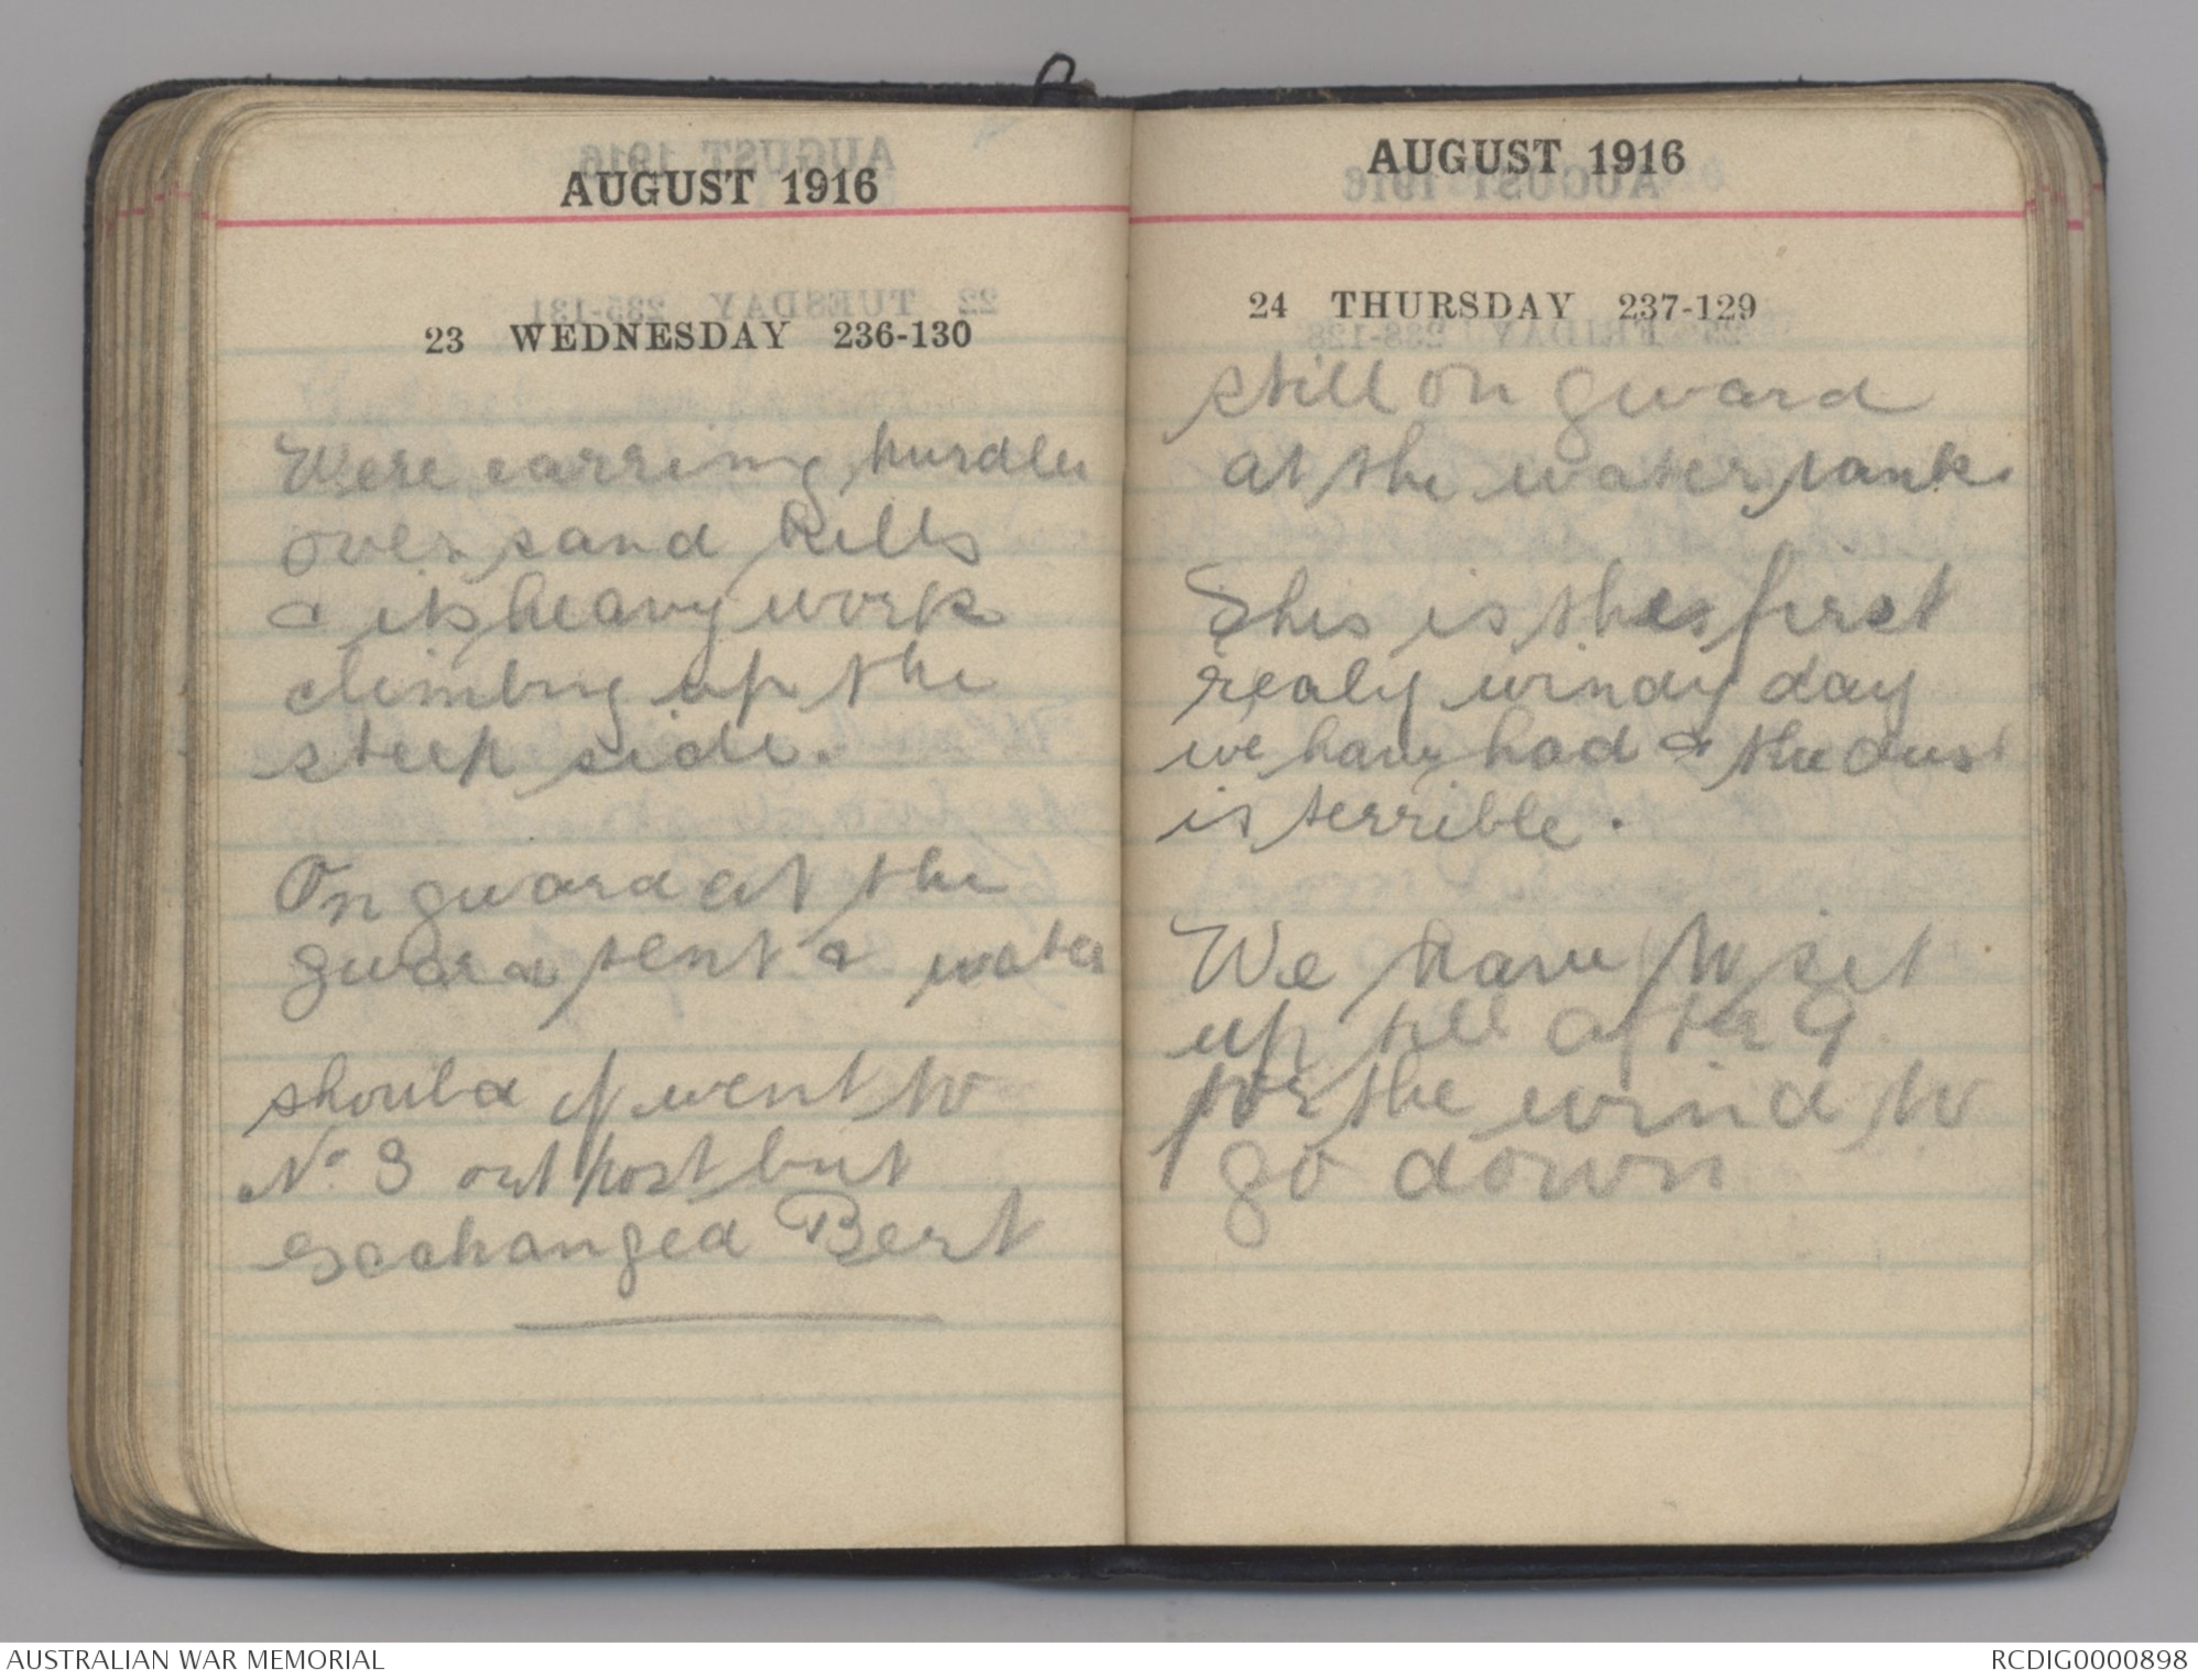 AUGUST 1916
23 WEDNESDAY 236-130
Were carring hurdles
over sand hills
& its heavy work
climbing up the
steep side.
On guard at the
guard tent & water
should of went to
No. 3 out post but
exchanged Bert
AUGUST 1916
24 THURSDAY 237-129
still on guard
at the water tank.
This is the first
realy windy day
we have had & the dust
is terrible.
We have to sit
up till after 9
for the wind to
go down
AUSTRALIAN WAR MEMORIAL
RCDIG0000898